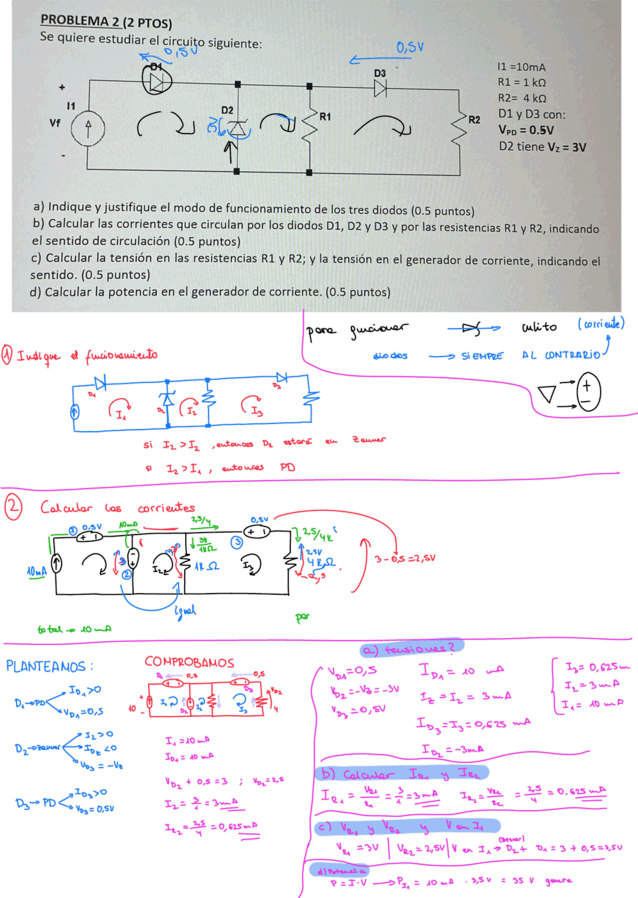 PROBLEMA 2 (2 PTOS)
Se quiere estudiar el circuito siguiente:
0,5V
0,5V
D1
D3
I1 =10mA
R1 = 1 kΩ
R2= 4 kΩ
D1 y D3 con:
VPD = 0.5V
D2 tiene VZ = 3V
+
I1
Vf
-
D2
R1
R2
a) Indique y justifique el modo de funcionamiento de los tres diodos (0.5 puntos)
b) Calcular las corrientes que circulan por los diodos D1, D2 y D3 y por las resistencias R1 y R2, indicando
el sentido de circulación (0.5 puntos)
c) Calcular la tensión en las resistencias R1 y R2; y la tensión en el generador de corriente, indicando el
sentido. (0.5 puntos)
d) Calcular la potencia en el generador de corriente. (0.5 puntos)
para funcionar → culito (corriente)
diodos → SIEMPRE AL CONTRARIO
① Indique el funcionamiento
D1
D2
D3
I1
I2
I3
si I2 > I2, entonces D2 estará en Zenner
si I2 > I1, entonces PD
② Calcular las corrientes
① 0,5V
10mA
2,5/4
0,5V
③
2,5/4k
10mA
②
I2
3V/1KΩ
1KΩ
I3
2,5V
4KΩ
3-0,5=2,5V
igual
total → 10 mA
por
PLANTEAMOS:
D1→PD
ID1>0
VD1=0,5
D2→zenner
I2>0
IDZ<0
VD3=-VZ
D3→PD
ID3>0
VD3=0,5V
COMPROBAMOS
0,5
0,5
I1=10mA
ID1=10mA
VD2 + 0,5=3 ; VD2=2,5
I2=3/1=3mA
IR2=2,5/4=0,625mA
a) tensiones?
VD1=0,5
VD2=-VZ=-3V
VD3=0,5V
ID1=10 mA
IZ=I2=3mA
ID3=I3=0,625 mA
ID2=-3mA
I3=0,625m
I2=3mA
I1=10mA
b) Calcular IR1 y IR2
IR1=VR1/R1=3/1=3mA IR2=VR2/R2=2,5/4=0,625mA
c) VR1 y VR2 y V en I1
VR1=3V | VR2=2,5V | V en I1 → D2+ D1=3+0,5=3,5V
(zenner)
d) Potencia
P=I·V → PI1=10 mA · 3,5V = 35 V genera